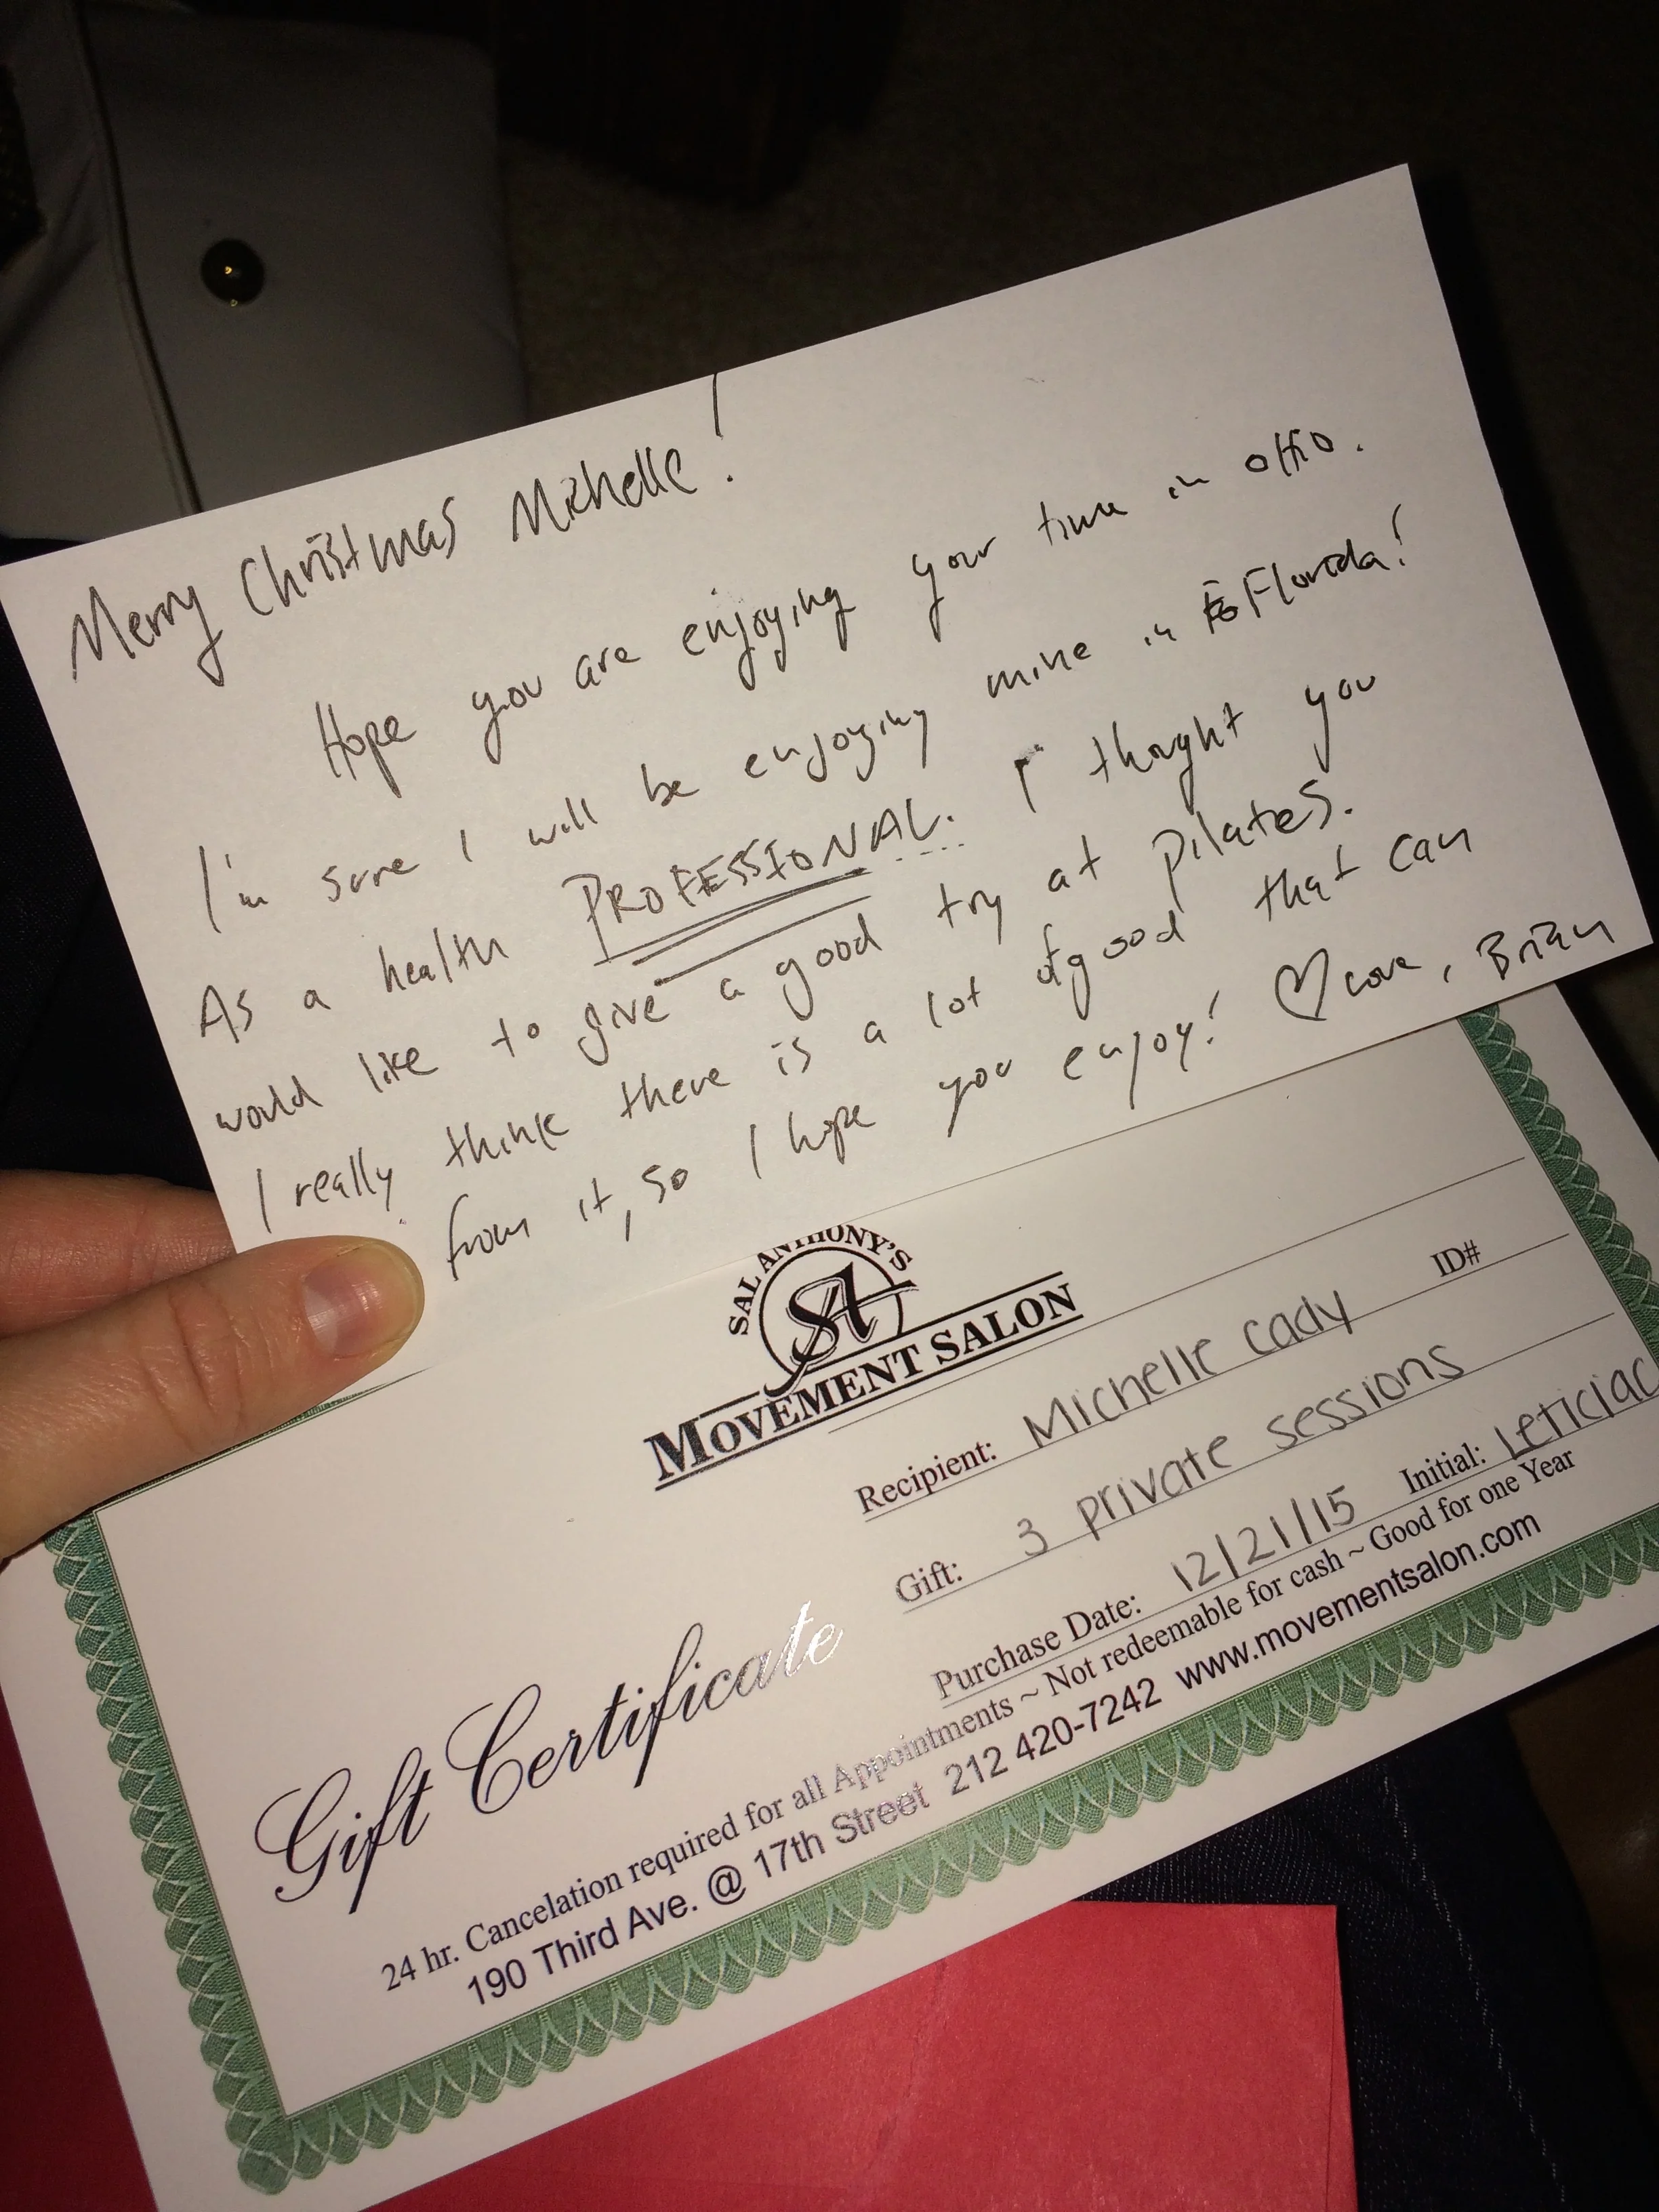 Merry Christmas Michelle!
Hope you are enjoying your time in OHIO.
I'm sure I will be enjoying mine in Florida!
As a health PROFESSIONAL. I thought you
would like to give a good try at pilates.
I really think there is a lot of good that can
from it, so I hope you enjoy! ♡ Love, Brian
SAL ANTHONY'S
SA
MOVEMENT SALON
Recipient: Michelle Cady ID#
Gift: 3 private sessions
Purchase Date: 12/21/15 Initial: Leticiac
Gift Certificate
24 hr. Cancelation required for all Appointments ~ Not redeemable for cash ~ Good for one Year
190 Third Ave. @ 17th Street 212 420-7242 www.movementsalon.com